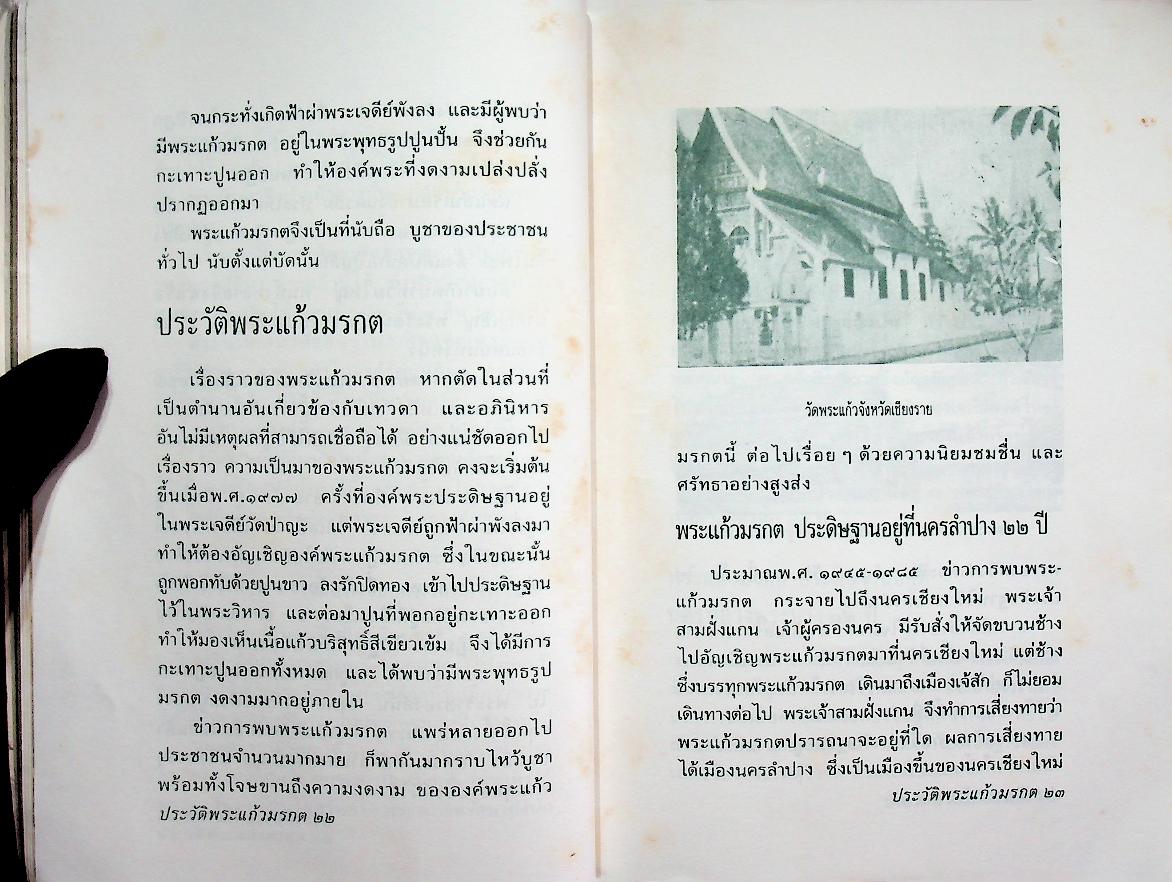 จนกระทั่งเกิดฟ้าผ่าพระเจดีย์พังลง และมีผู้พบว่า
มีพระแก้วมรกต อยู่ในพระพุทธรูปปูนปั้น จึงช่วยกัน
กะเทาะปูนออก ทำให้องค์พระที่งดงามเปล่งปลั่ง
ปรากฏออกมา
พระแก้วมรกตจึงเป็นที่นับถือ บูชาของประชาชน
ทั่วไป นับตั้งแต่บัดนั้น
ประวัติพระแก้วมรกต
เรื่องราวของพระแก้วมรกต หากตัดในส่วนที่
เป็นตำนานอันเกี่ยวข้องกับเทวดา และอภินิหาร
อันไม่มีเหตุผลที่สามารถเชื่อถือได้ อย่างแน่ชัดออกไป
เรื่องราว ความเป็นมาของพระแก้วมรกต คงจะเริ่มต้น
ขึ้นเมื่อพ.ศ.๑๙๗๗ ครั้งที่องค์พระประดิษฐานอยู่
ในพระเจดีย์วัดป่าญะ แต่พระเจดีย์ถูกฟ้าผ่าพังลงมา
ทำให้ต้องอัญเชิญองค์พระแก้วมรกต ซึ่งในขณะนั้น
ถูกพอกทับด้วยปูนขาว ลงรักปิดทอง เข้าไปประดิษฐาน
ไว้ในพระวิหาร และต่อมาปูนที่พอกอยู่กะเทาะออก
ทำให้มองเห็นเนื้อแก้วบริสุทธิ์สีเขียวเข้ม จึงได้มีการ
กะเทาะปูนออกทั้งหมด และได้พบว่ามีพระพุทธรูป
มรกต งดงามมากอยู่ภายใน
ข่าวการพบพระแก้วมรกต แพร่หลายออกไป
ประชาชนจำนวนมากมาย ก็พากันมากราบไหว้บูชา
พร้อมทั้งโจษขานถึงความงดงาม ขององค์พระแก้ว
ประวัติพระแก้วมรกต ๒๒
วัดพระแก้วจังหวัดเชียงราย
มรกตนี้ ต่อไปเรื่อย ๆ ด้วยความนิยมชมชื่น และ
ศรัทธาอย่างสูงส่ง
พระแก้วมรกต ประดิษฐานอยู่ที่นครลำปาง ๒๒ ปี
ประมาณพ.ศ. ๑๙๔๕-๑๙๘๕ ข่าวการพบพระ-
แก้วมรกต กระจายไปถึงนครเชียงใหม่ พระเจ้า
สามฝั่งแกน เจ้าผู้ครองนคร มีรับสั่งให้จัดขบวนช้าง
ไปอัญเชิญพระแก้วมรกตมาที่นครเชียงใหม่ แต่ช้าง
ซึ่งบรรทุกพระแก้วมรกต เดินมาถึงเมืองเจ้สัก ก็ไม่ยอม
เดินทางต่อไป พระเจ้าสามฝั่งแกน จึงทำการเสี่ยงทายว่า
พระแก้วมรกตปรารถนาจะอยู่ที่ใด ผลการเสี่ยงทาย
ได้เมืองนครลำปาง ซึ่งเป็นเมืองขึ้นของนครเชียงใหม่
ประวัติพระแก้วมรกต ๒๓